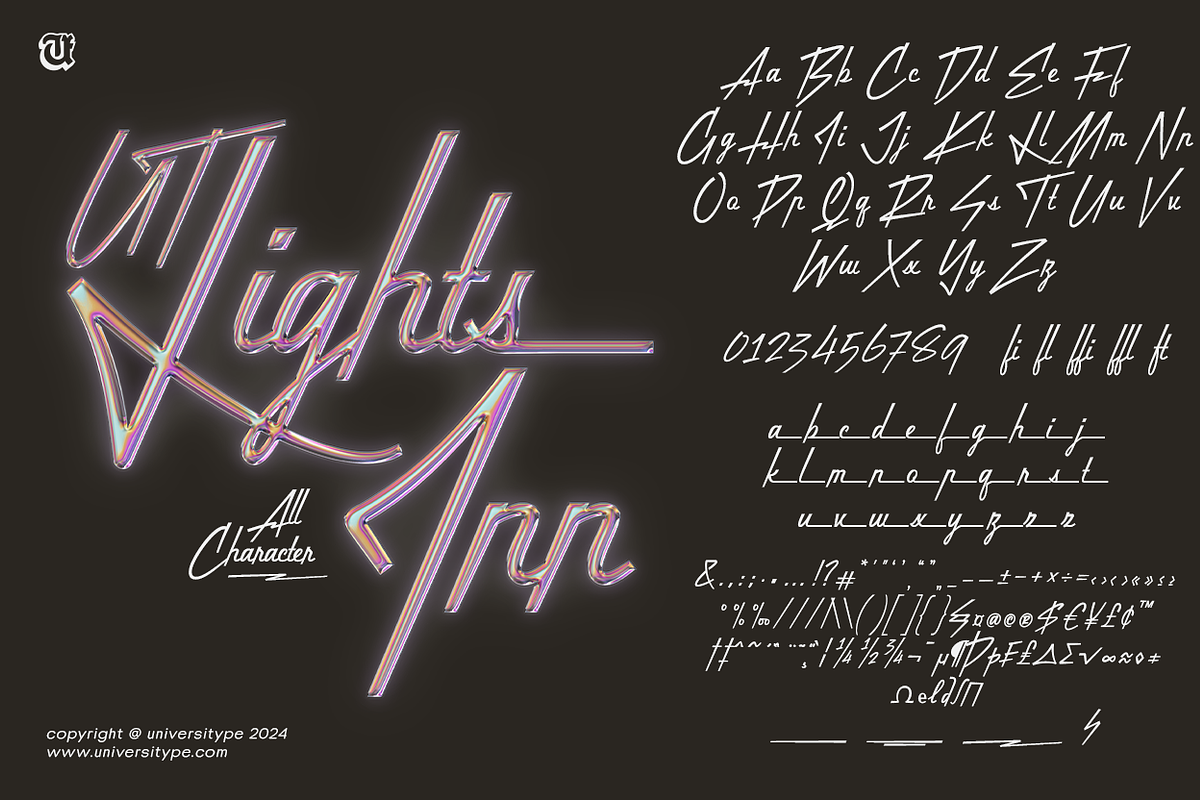 U
UT
Lights
Inn
All
Character
copyright @ universitype 2024
www.universitype.com
Aa Bb Cc Dd Ee Ff
Gg Hh Ii Jj Kk Ll Mm Nn
Oo Pp Qq Rr Ss Tt Uu Vv
Ww Xx Yy Zz
0123456789 fi fl ffi ffl ft
a b c d e f g h i j
k l m n o p q r s t
u v w x y z r z
&.,:;·•…!?#*"'
°%‰///|\\()[]{}
$€¥£¢™
¼½¾¬